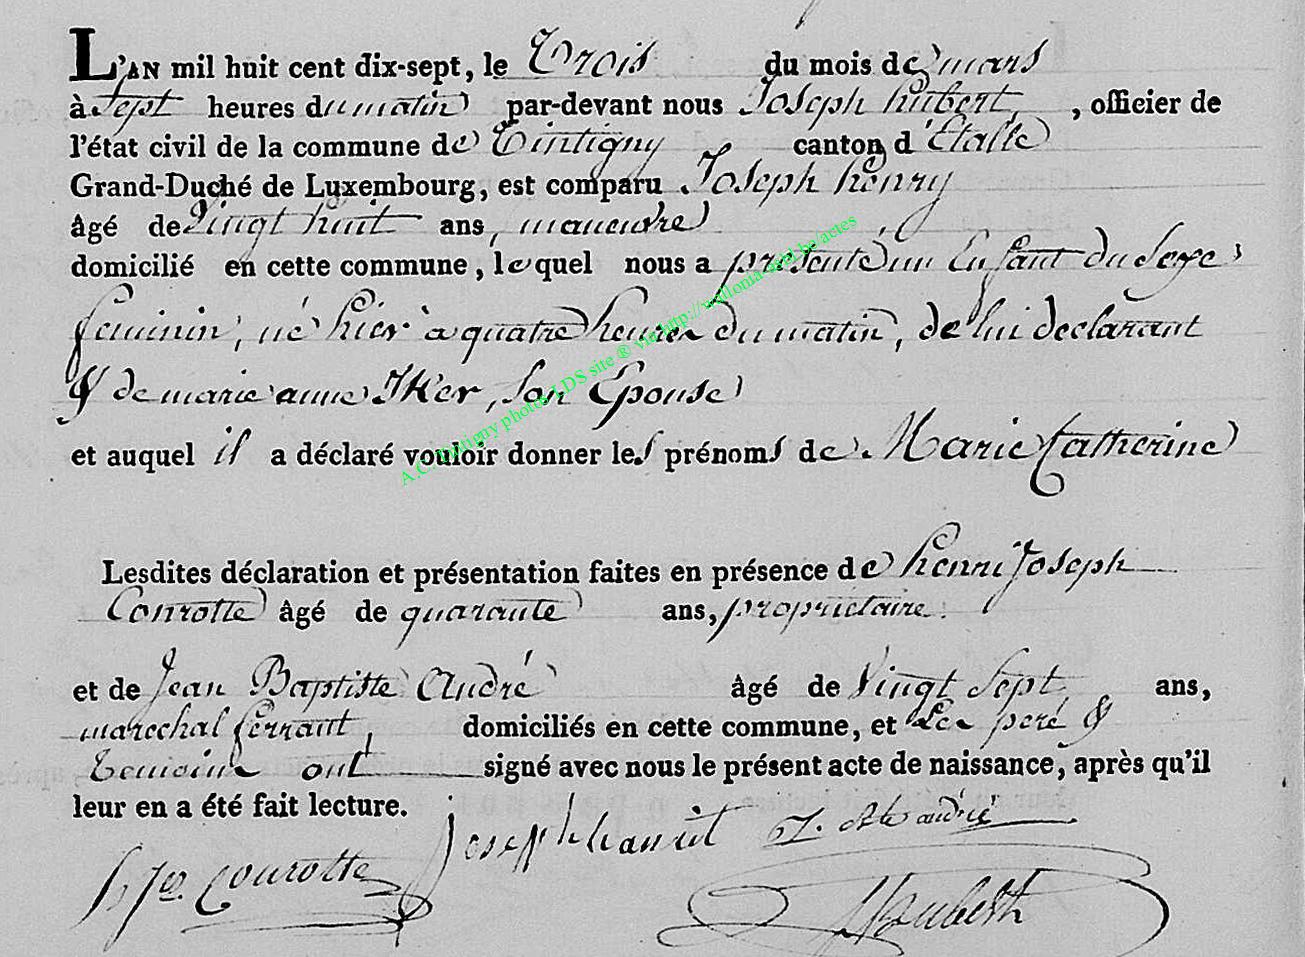 L'AN mil huit cent dix-sept, le Trois du mois de mars
à sept heures du matin par-devant nous Joseph hubert, officier de
l'état civil de la commune de Tintigny canton d'Etalle
Grand-Duché de Luxembourg, est comparu Joseph henry
âgé de vingt huit ans, maneuvre
domicilié en cette commune, lequel nous a presenté un Enfant du Sexe
feminin, né hier à quatre heures du matin, de lui declarant
& de marie anne son Epouse
et auquel il a déclaré vouloir donner les prénoms de Marie Catherine
Lesdites déclaration et présentation faites en présence de henri Joseph
Conrotte âgé de quarante ans, propriétaire.
et de Jean Baptiste André âgé de Vingt Sept ans,
marechal ferrant, domiciliés en cette commune, et Les peré &
temoins ont signé avec nous le présent acte de naissance, après qu'il
leur en a été fait lecture.
Joseph hanrit J. Bte andrié
h Jos. Conrotte
Hubert
A.C. Tintigny photos LDS site ® via http://wallonia-asbl.be/actes